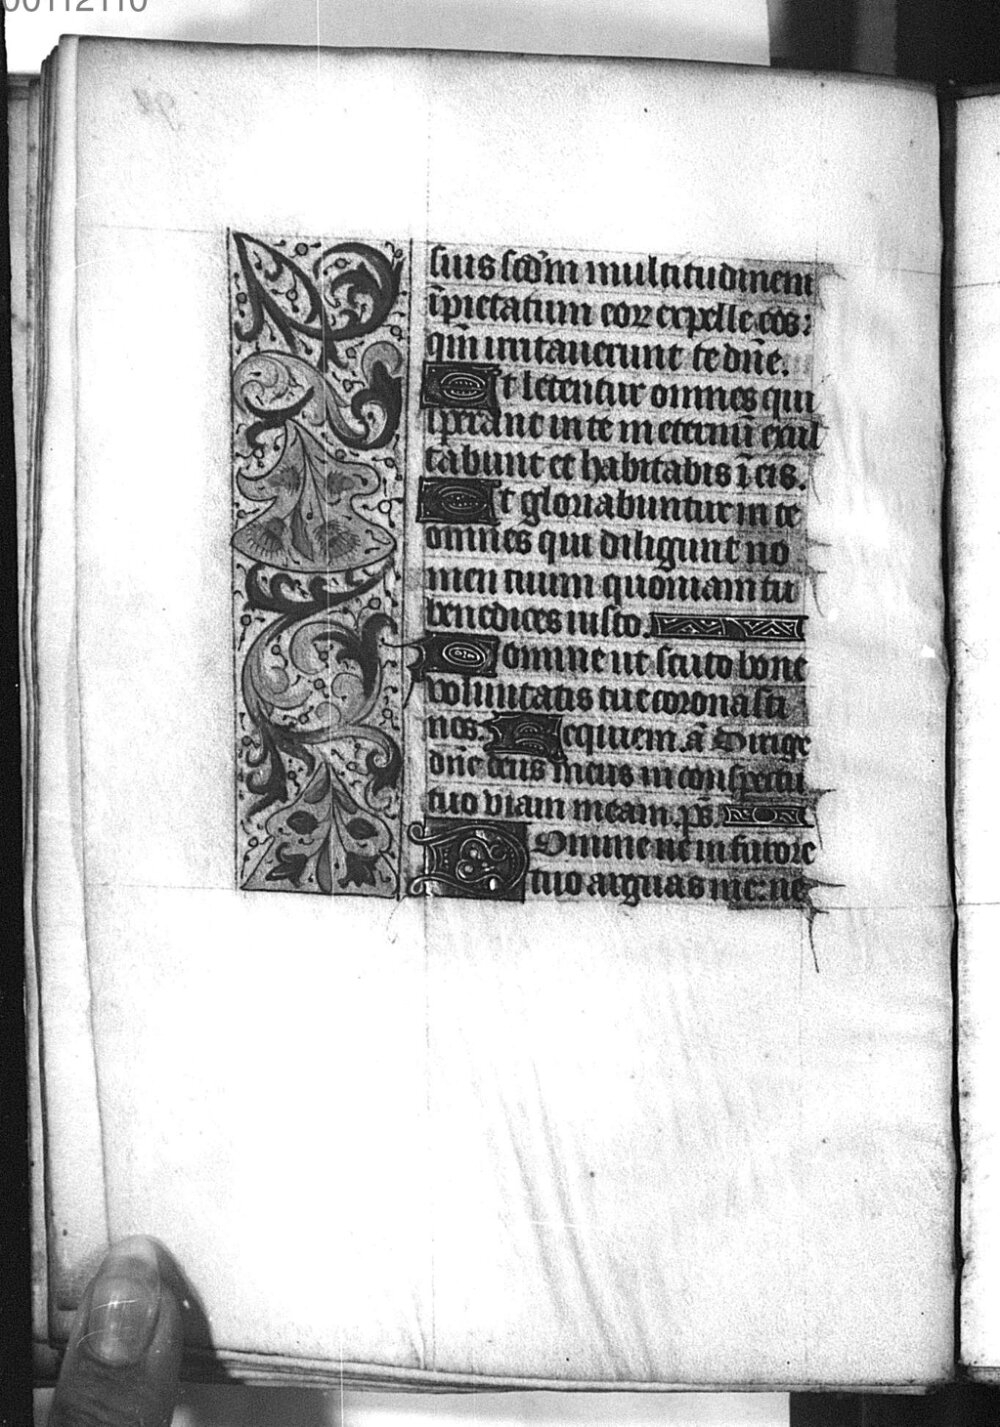 00112110
suis scd̄m multitudinem
īpietatum eoꝝ expelle eos:
qm̄ irritauerunt te dn̄e.
Et letentur omnes qui
sperant in te in eternū exul
tabunt et habitabis ī eis.
Et gloriabuntur in te
omnes qui diligunt no
men tuum quoniam tu
benedices iusto.
Domine ut scuto bone
voluntatis tue coronasti
nos. Requiem. ā Dirige
dn̄e deus meus in conspectu
tuo viam meam. ps̄.
Domine ne in furore
tuo arguas me: ne